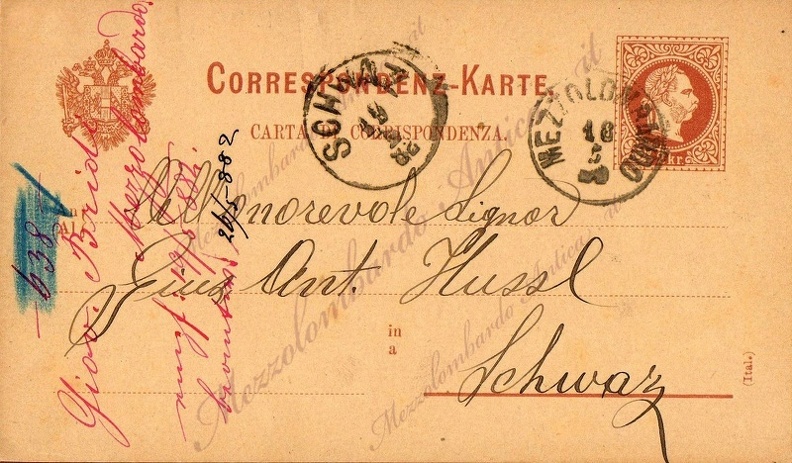 CORRESPONDENZ-KARTE.
CARTA DI CORRISPONDENZA.
kr.
SCHWAZ
19
MEZZOLOMBARDO
18
5
All'Onorevole Signor
Gius Ant. Hussl
in
a
Schwaz
(Ital.)
638
Giov. Bridi
Mezzolombardo
26/5 882
Mezzolombardo Antica .it
Mezzolombardo Antica .it
Mezzolombardo Antica .it